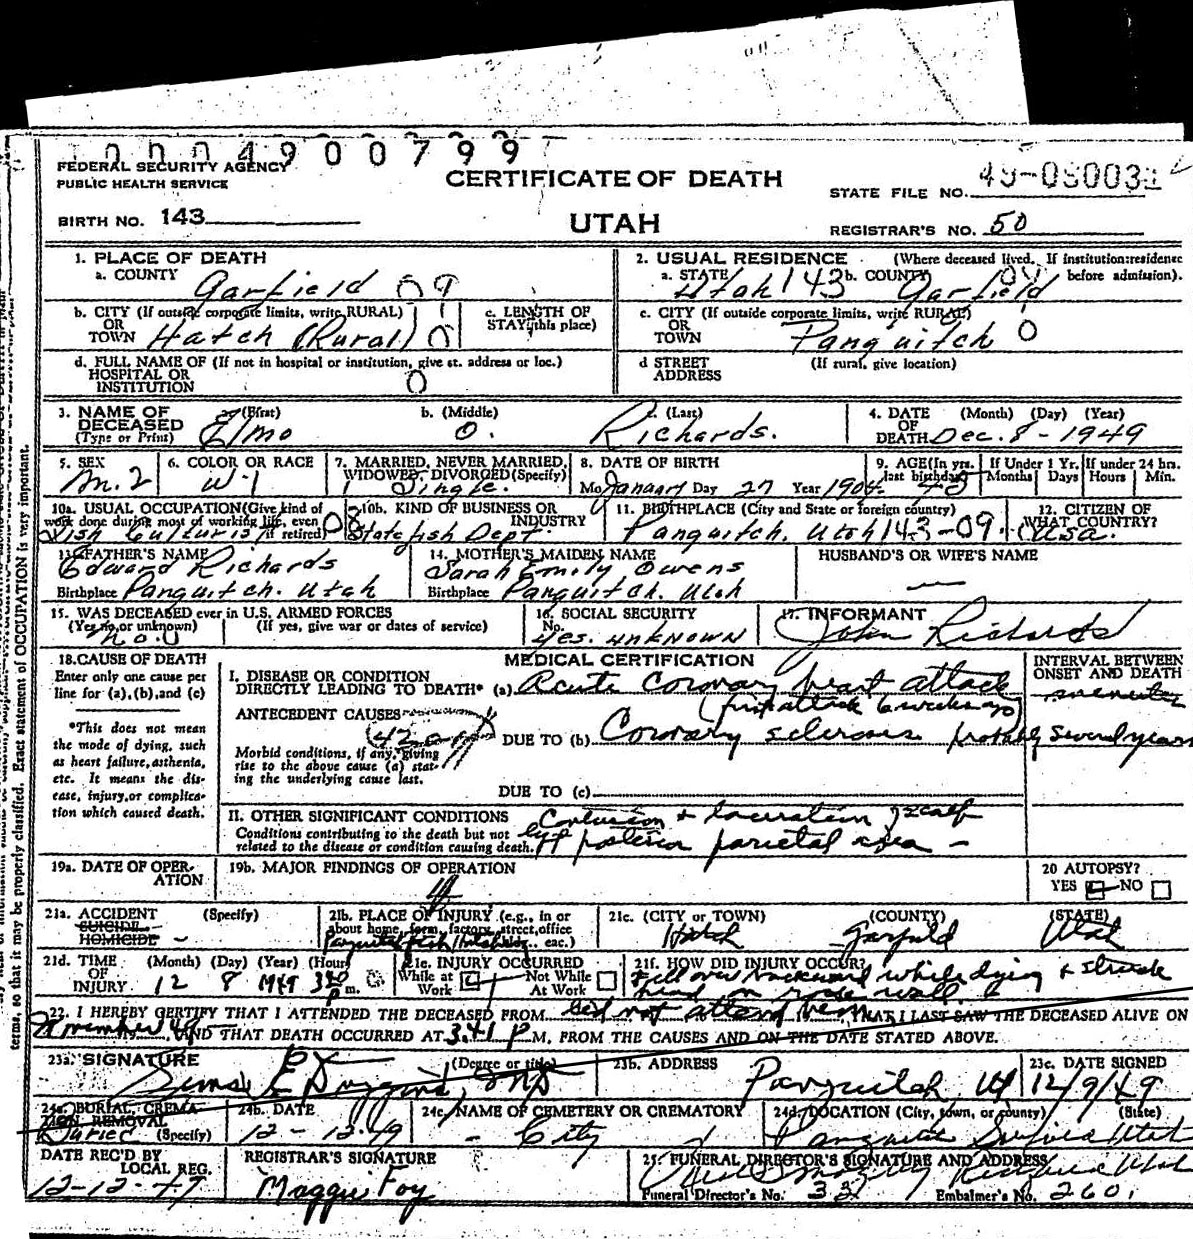 0004900799
FEDERAL SECURITY AGENCY
PUBLIC HEALTH SERVICE
CERTIFICATE OF DEATH
STATE FILE NO.
BIRTH NO. 143
UTAH
REGISTRAR'S NO. 50
1. PLACE OF DEATH
a. COUNTY
Garfield 09
2. USUAL RESIDENCE (Where deceased lived. If institution: residence before admission).
a. STATE Utah 143 b. COUNTY Garfield
b. CITY (If outside corporate limits, write RURAL)
OR
TOWN Hatch (Rural) 0
c. LENGTH OF
STAY (this place)
c. CITY (If outside corporate limits, write RURAL)
OR
TOWN Panguitch 0
d. FULL NAME OF (If not in hospital or institution, give st. address or loc.)
HOSPITAL OR
INSTITUTION 0
d STREET (If rural, give location)
ADDRESS
3. NAME OF
DECEASED
(Type or Print)
(First) Elmo
b. (Middle) O.
(Last) Richards.
4. DATE (Month) (Day) (Year)
OF
DEATH Dec. 8 - 1949
5. SEX
M. 2
6. COLOR OR RACE
W-1
7. MARRIED, NEVER MARRIED,
WIDOWED, DIVORCED (Specify)
1 Single.
8. DATE OF BIRTH
Mo. January Day 27 Year
9. AGE (In yrs.
last birthday)
If Under 1 Yr.
Months Days
If under 24 hrs.
Hours Min.
10a. USUAL OCCUPATION (Give kind of
work done during most of working life, even
if retired)
Fish Culturist
10b. KIND OF BUSINESS OR
INDUSTRY
State fish Dept.
11. BIRTHPLACE (City and State or foreign country)
Panguitch, Utah 143-09.
12. CITIZEN OF
WHAT COUNTRY?
USA.
13. FATHER'S NAME
Edward Richards
Birthplace Panguitch. Utah
14. MOTHER'S MAIDEN NAME
Sarah Emily Owens
Birthplace Panguitch. Utah
HUSBAND'S OR WIFE'S NAME
—
15. WAS DECEASED ever in U.S. ARMED FORCES
(Yes, no, or unknown) (If yes, give war or dates of service)
No. 0
16. SOCIAL SECURITY
No.
Yes. unknown
17. INFORMANT
John Richards
18. CAUSE OF DEATH
Enter only one cause per
line for (a), (b), and (c)
*This does not mean
the mode of dying, such
as heart failure, asthenia,
etc. It means the dis-
ease, injury, or complica-
tion which caused death.
MEDICAL CERTIFICATION
I. DISEASE OR CONDITION
DIRECTLY LEADING TO DEATH* (a) Acute Coronary heart attack
(first attack 6 weeks ago)
ANTECEDENT CAUSES
Morbid conditions, if any, giving
rise to the above cause (a) stat-
ing the underlying cause last.
DUE TO (b) Coronary sclerosis probably several years
DUE TO (c)
INTERVAL BETWEEN
ONSET AND DEATH
II. OTHER SIGNIFICANT CONDITIONS
Conditions contributing to the death but not
related to the disease or condition causing death.
Contusion + laceration of scalp
left posterior parietal area -
19a. DATE OF OPER-
ATION
19b. MAJOR FINDINGS OF OPERATION
20 AUTOPSY?
YES NO
21a. ACCIDENT (Specify)
SUICIDE
HOMICIDE -
21b. PLACE OF INJURY (e.g., in or
about home, farm, factory, street, office
bldg., eac.)
21c. (CITY or TOWN) (COUNTY) (STATE)
Hatch Garfield Utah
21d. TIME (Month) (Day) (Year) (Hour)
OF
INJURY 12 8 1949 m.
21e. INJURY OCCURRED
While at
Work
Not While
At Work
21f. HOW DID INJURY OCCUR?
Fell over backward while dying + struck
head on wall.
22. I HEREBY CERTIFY THAT I ATTENDED THE DECEASED FROM Did not attend THAT I LAST SAW THE DECEASED ALIVE ON
AND THAT DEATH OCCURRED AT 3:41 P M, FROM THE CAUSES AND ON THE DATE STATED ABOVE.
23a. SIGNATURE (Degree or title)
Sims E Duggins, MD
23b. ADDRESS
Panguitch, Ut
23c. DATE SIGNED
12/9/49
24a. BURIAL, CREMA-
TION, REMOVAL
(Specify)
Buried
24b. DATE
12-12-49
24c. NAME OF CEMETERY OR CREMATORY
- City
24d. LOCATION (City, town, or county) (State)
Panguitch Utah
DATE REC'D BY
LOCAL REG.
12-12-49
REGISTRAR'S SIGNATURE
Maggie Foy
25. FUNERAL DIRECTOR'S SIGNATURE AND ADDRESS
Funeral Director's No. Embalmer's No. 260
terms, so that it may be properly classified. Exact statement of OCCUPATION is very important.